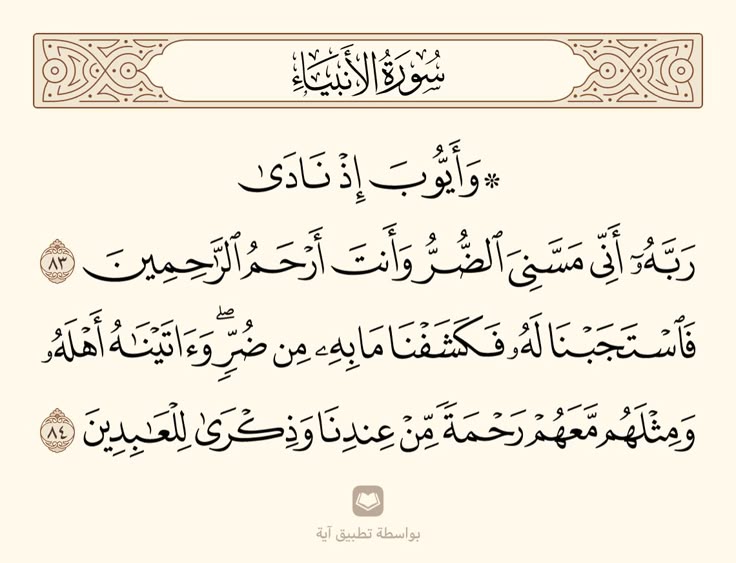 سُورَةُ الأَنبِيَاءِ
۞وَأَيُّوبَ إِذۡ نَادَىٰ
رَبَّهُۥٓ أَنِّي مَسَّنِيَ ٱلضُّرُّ وَأَنتَ أَرۡحَمُ ٱلرَّٰحِمِينَ ٨٣
فَٱسۡتَجَبۡنَا لَهُۥ فَكَشَفۡنَا مَا بِهِۦ مِن ضُرّٖۖ وَءَاتَيۡنَٰهُ أَهۡلَهُۥ
وَمِثۡلَهُم مَّعَهُمۡ رَحۡمَةٗ مِّنۡ عِندِنَا وَذِكۡرَىٰ لِلۡعَٰبِدِينَ ٨٤
بواسطة تطبيق آية